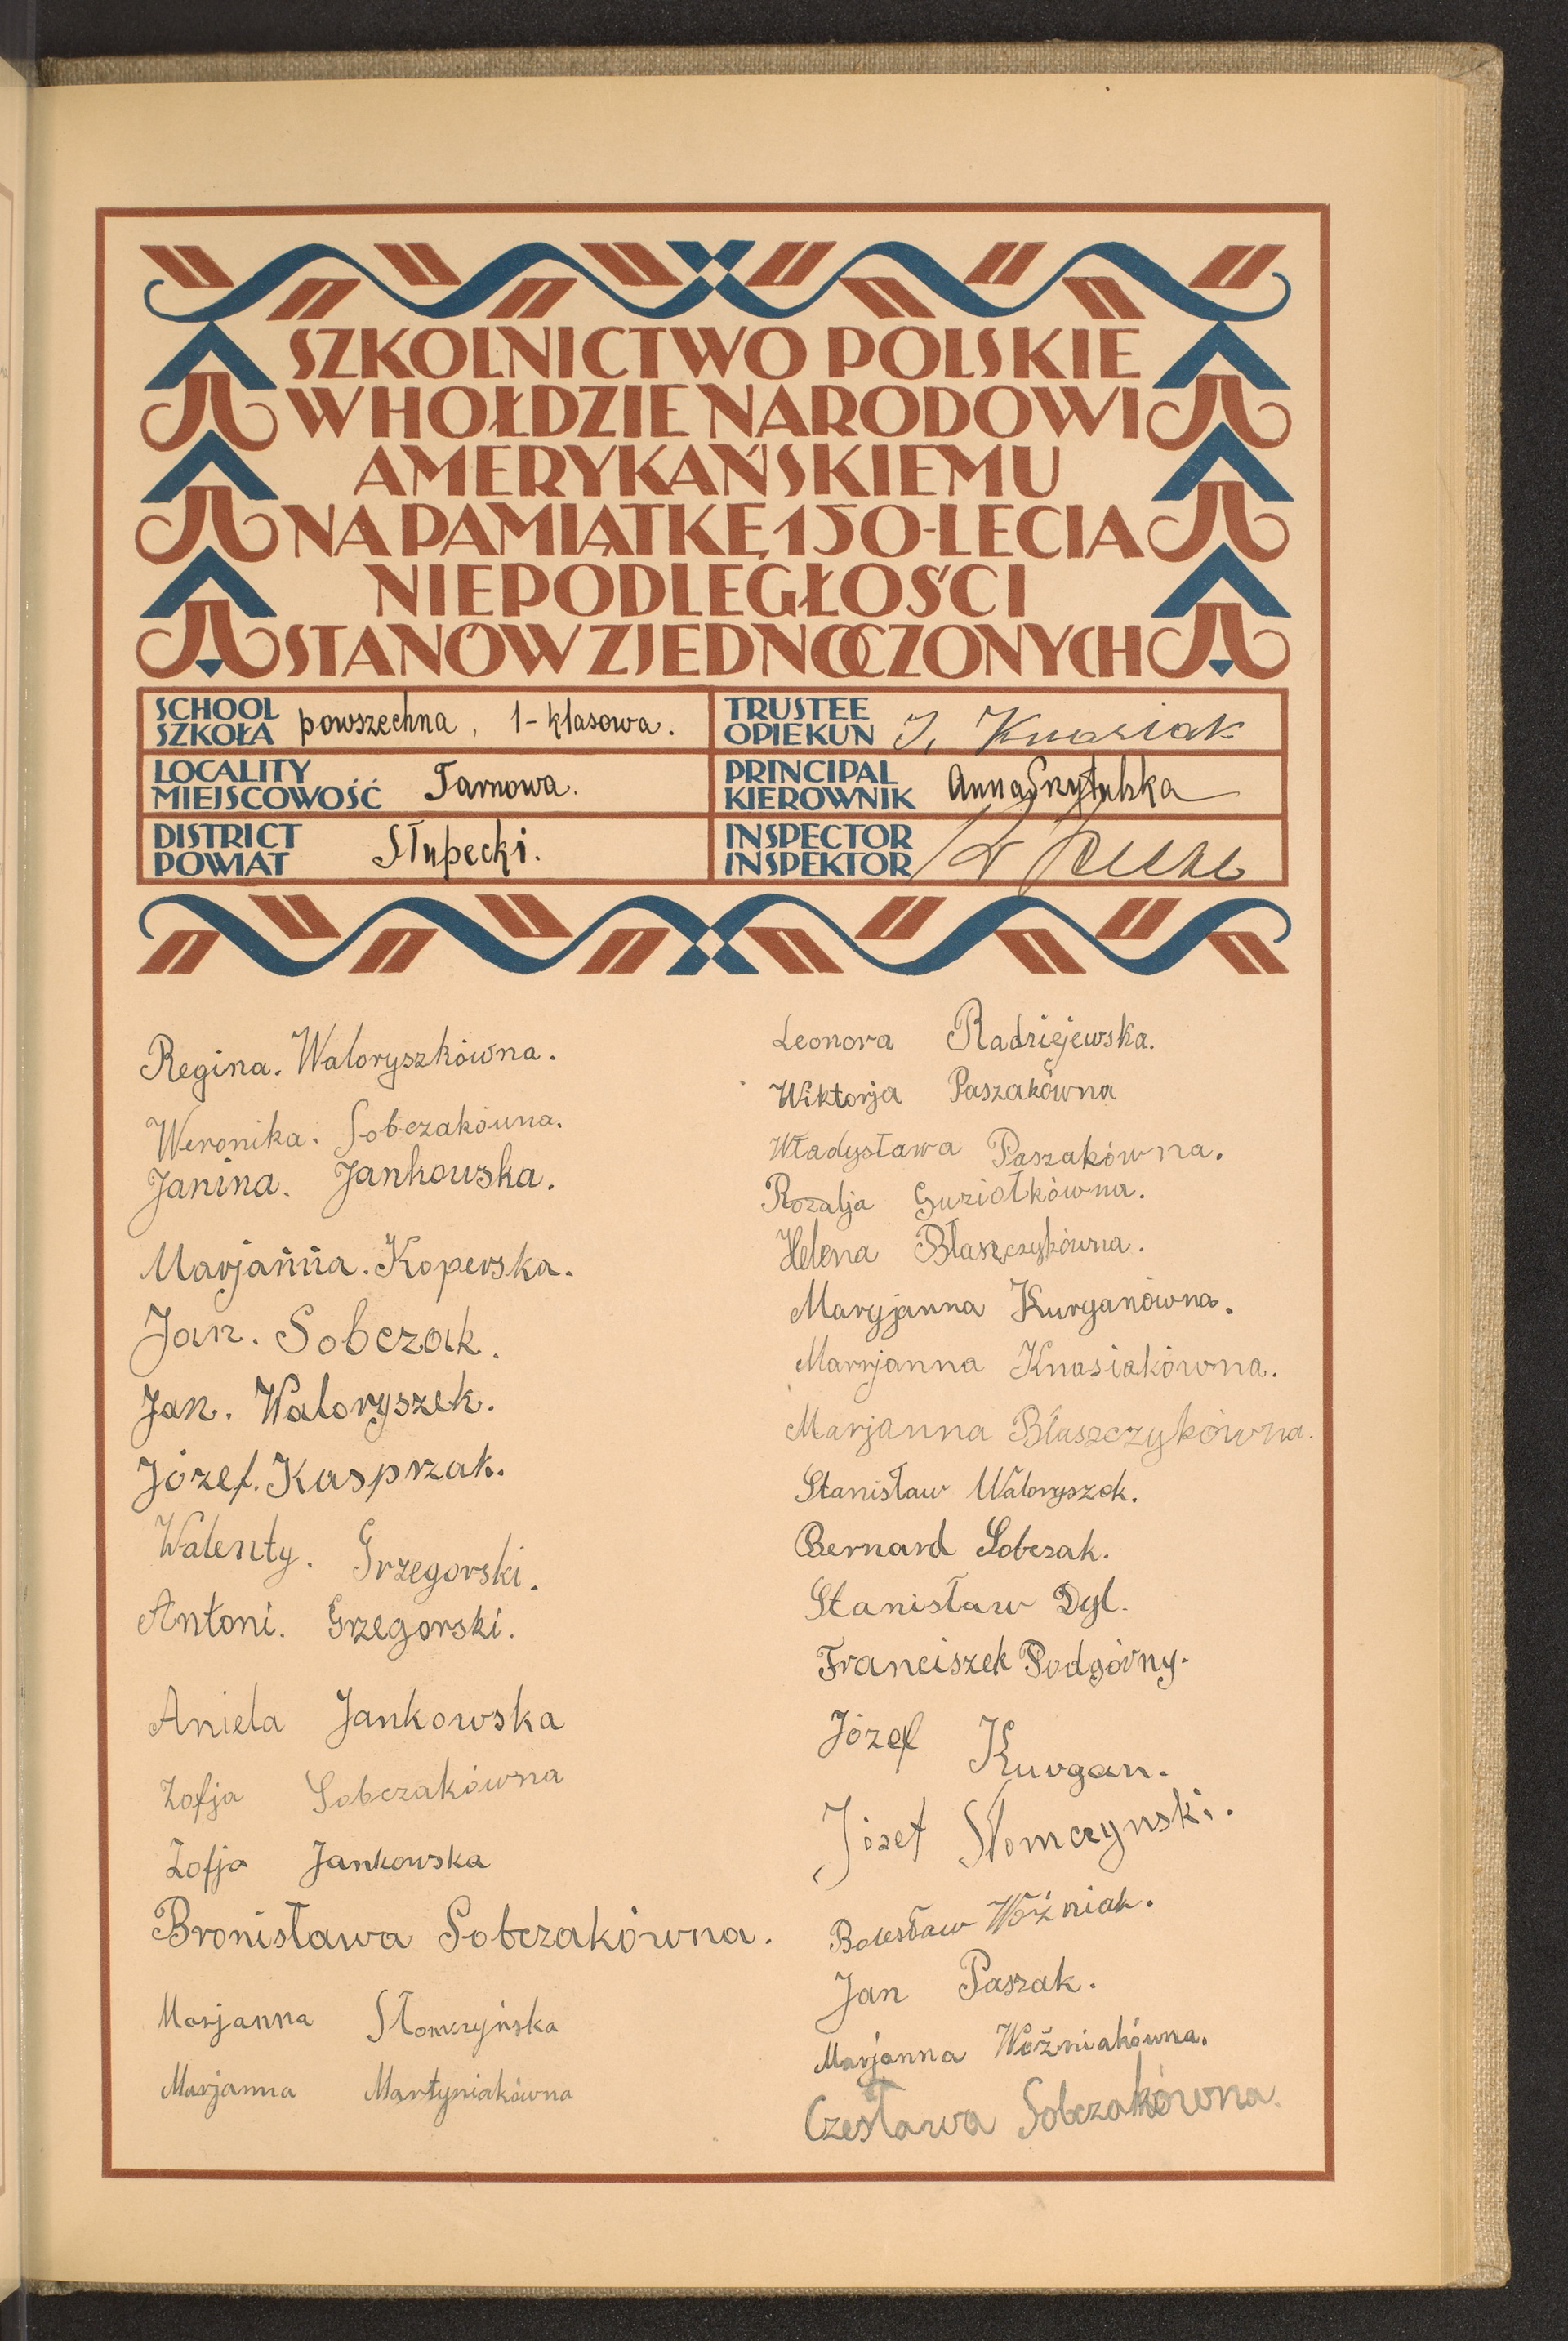 SZKOLNICTWO POLSKIE
W HOŁDZIE NARODOWI
AMERYKAŃSKIEMU
NA PAMIĄTKĘ 150-LECIA
NIEPODLEGŁOŚCI
STANÓW ZJEDNOCZONYCH
SCHOOL
SZKOŁA powszechna, 1-klasowa.
LOCALITY
MIEJSCOWOŚĆ Tarnowa.
DISTRICT
POWIAT Słupecki.
TRUSTEE
OPIEKUN J. Knasiak
PRINCIPAL
KIEROWNIK Anna
INSPECTOR
INSPEKTOR
Regina. Waloryszkówna.
Weronika. Sobczakówna.
Janina. Jankowska.
Marjanna. Koperska.
Jan. Sobczak.
Jan. Waloryszek.
Józef. Kasprzak.
Walenty. Grzegorski.
Antoni. Grzegorski.
Aniela Jankowska
Zofja Sobczakówna
Zofja Jankowska
Bronisława Sobczakówna.
Marjanna Słomczyńska
Marjanna Martyniakówna
Leonora Radziejewska.
Wiktorja Paszakówna
Władysława Paszakówna.
Rozalja Guziołkówna.
Helena Błaszczykówna.
Maryjanna Kurganówna.
Marjanna Knasiakówna.
Marjanna Błaszczykówna.
Stanisław Waloryszek.
Bernard Sobczak.
Stanisław Dyl.
Franciszek Podgórny.
Józef Kurgan.
Józef Słomczynski.
Bolesław Woźniak.
Jan Paszak.
Marjanna Woźniakówna.
Czesława Sobczakówna.